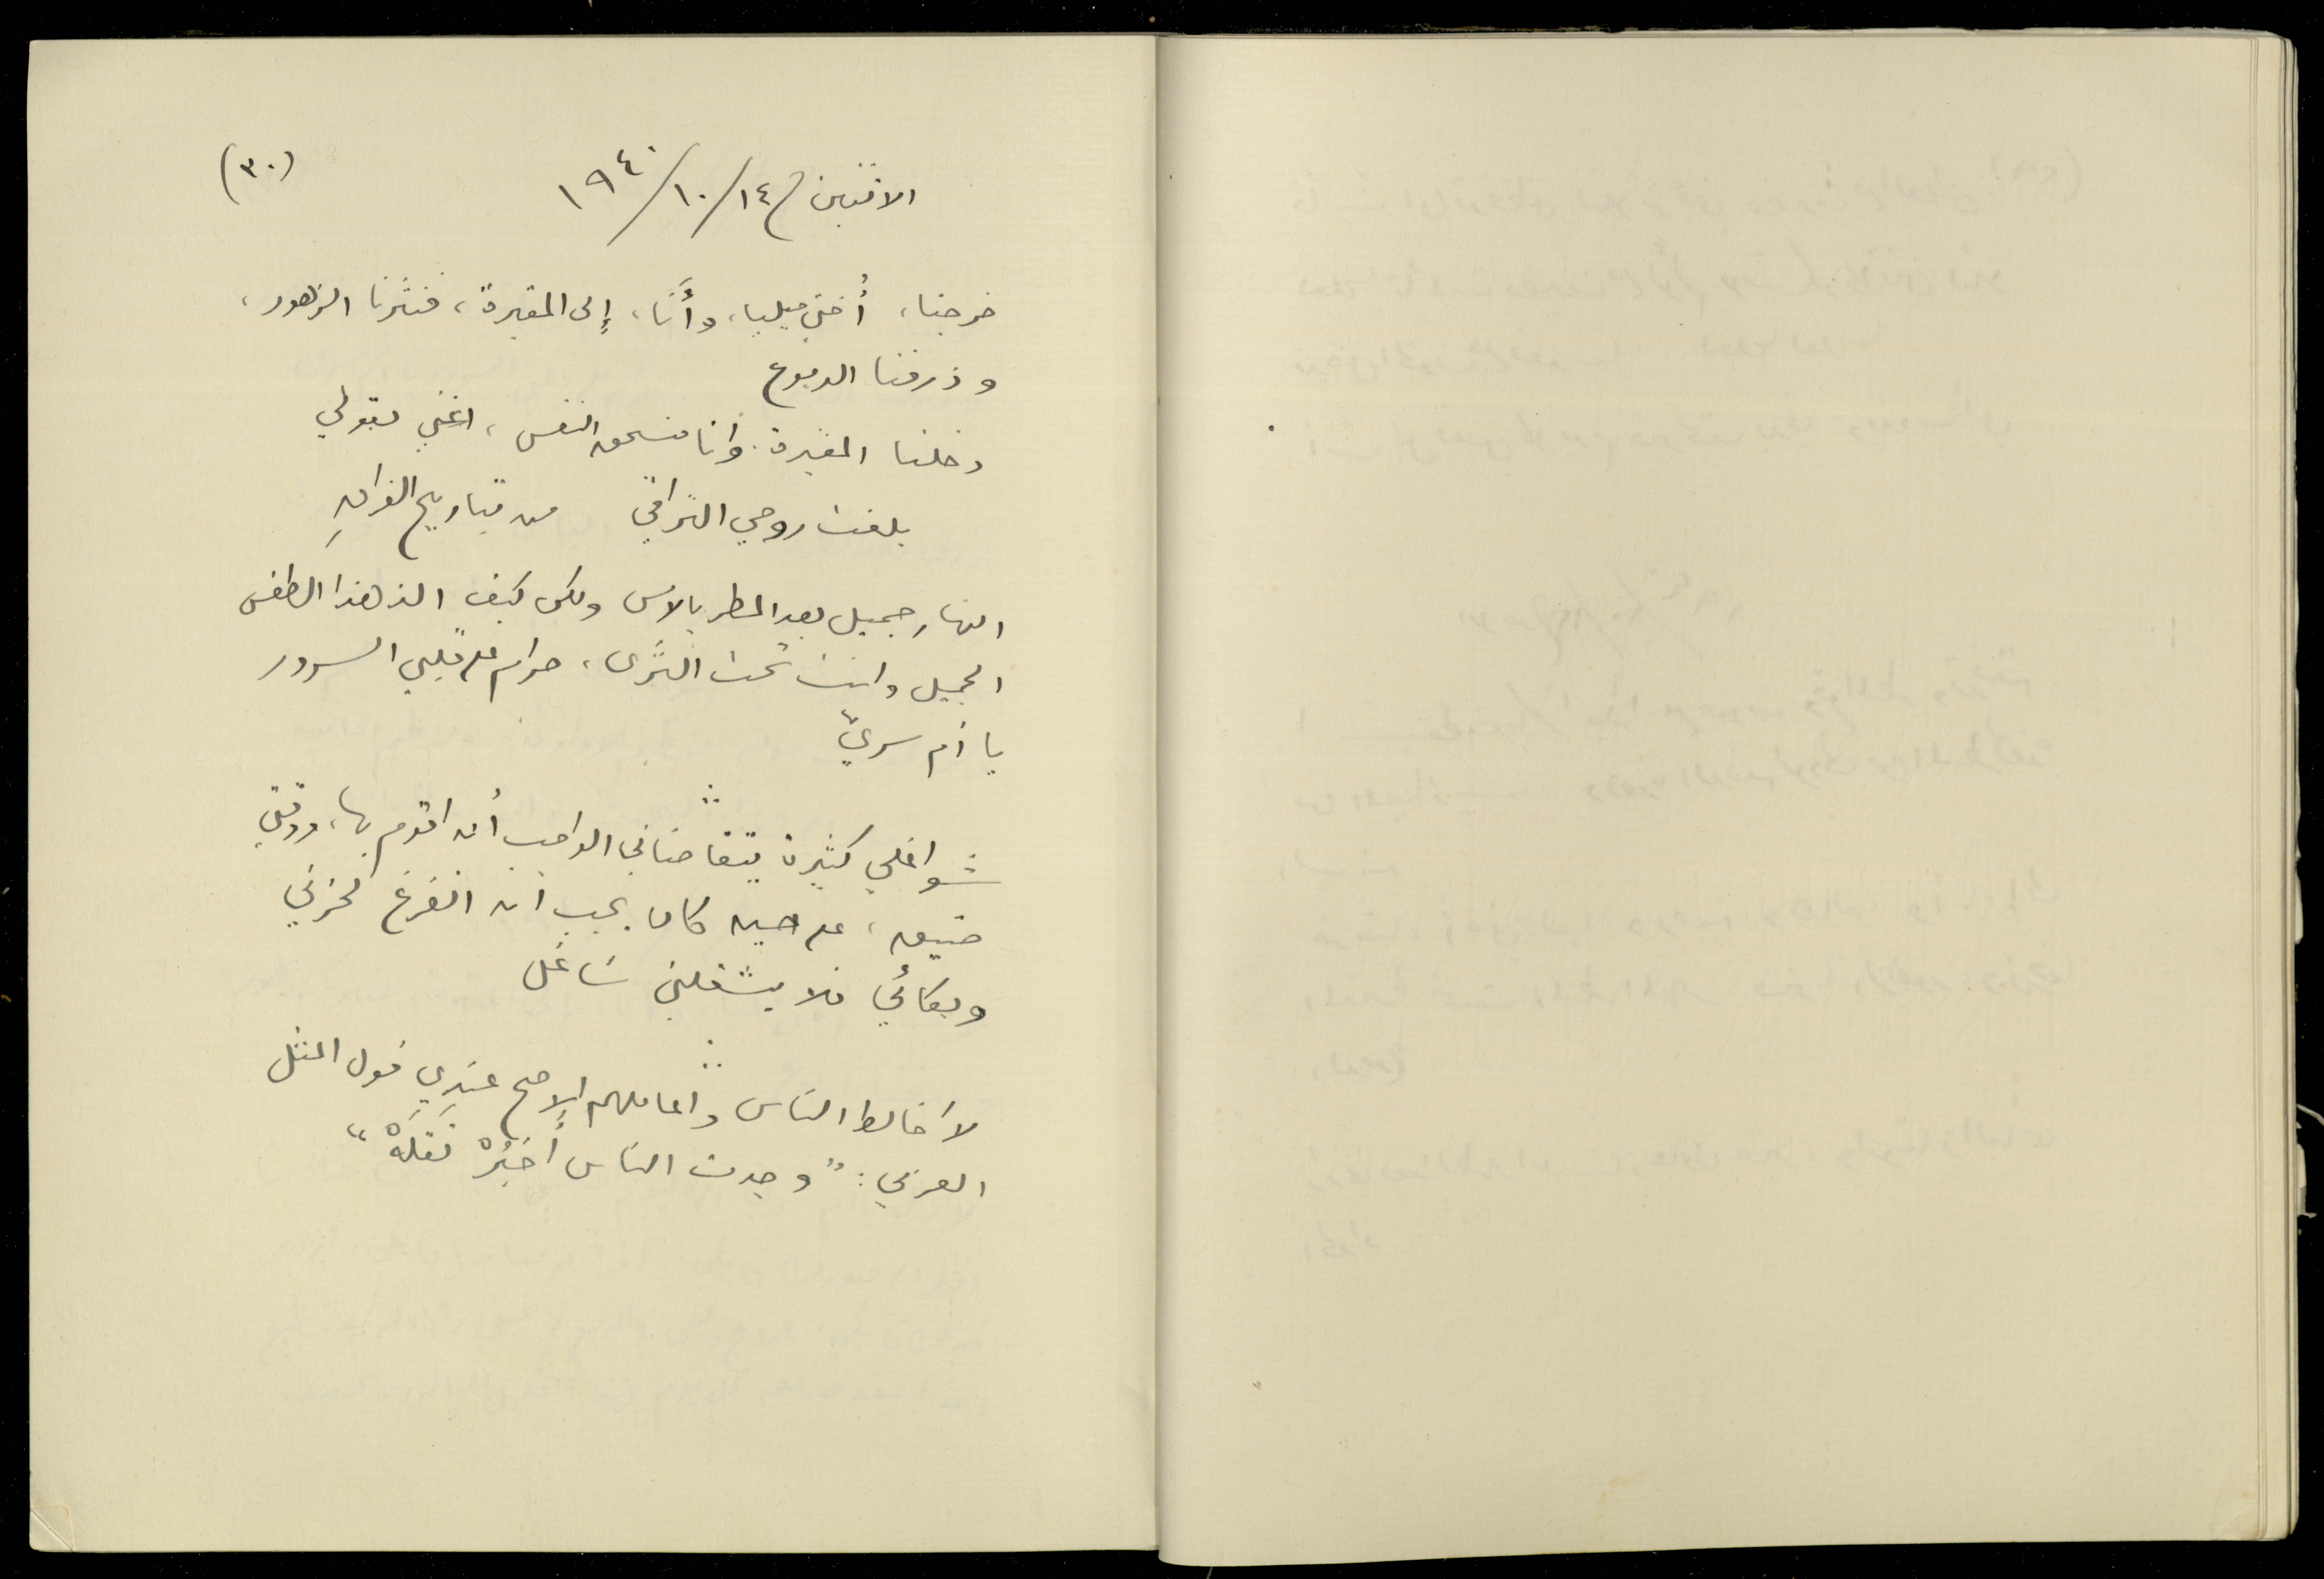 (٣٠)
الاثنين ١٤/١٠/١٩٤٠
خرجنا، أختي ميليا، وأنَا، إلى المقبرة، فنثرنا الزهور،
وذرفنا الدموع
دخلنا المقبرة وأنا منسحق النفس، اغني بقولي
بلغت روحي التراقي من تباريح الفراقِ
النهار جميل بعد المطر بالامس ولكن كيف الذ هذا الطقس
الجميل وانت تحت الثَّرى، حرام على قلبي السرور
يا أم سريّ
شواغلي كثيرة يتقاضاني الواجب أن اقوم بها، ووقتي
ضيق، على حين كان يجب ان اتفرغ لحزني
وبكائي فلا يشغلني شاغل
لا أخالط الناس وأعاملهم إلا صح عندي قول المثل
العربي: "وجدت الناس أُخبُرْهْ تَقلَهْ"